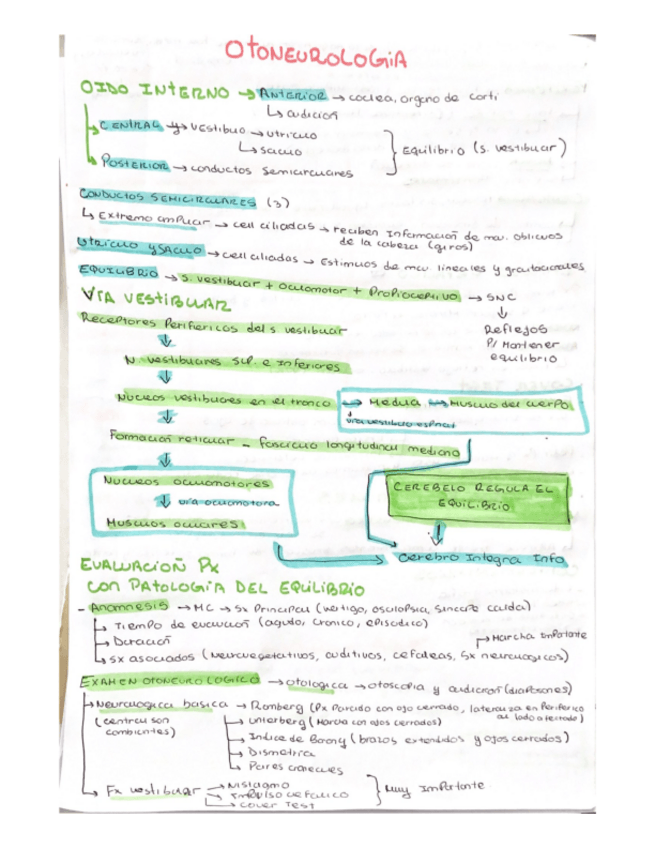 OTONEUROLOGIA
OIDO INTERNO → ANTERIOR → coclea, organo de corti
↳ audicion
→ CENTRAL → vestibulo → utriculo
↳ saculo
→ POSTERIOR → conductos semicirculares
} Equilibrio (s. vestibular)
CONDUCTOS SEMICIRCULARES (3)
↳ Extremo ampular → cell ciliadas → reciben informacion de mov. oblicuos
de la cabeza (giros)
Utriculo y SACULO → cell ciliadas → Estimulos de mov lineales y gravitacionales
EQUILIBRIO → s. vestibular + oculomotor + Propioceptivo → SNC
↓
Reflejos
P/ Mantener
equilibrio
VIA VESTIBULAR
Receptores Perifericos del s vestibular
↓
N vestibulares sup. e Inferiores
↓
Nucleos vestibulares en el tronco → Medula → Musculo del cuerpo
via vestibulo espinal
↓
Formacion reticular - fasciculo longitudinal mediano
↓
Nucleos oculomotores
↓ via oculomotora
Musculos oculares
CEREBELO REGULA EL
EQUILIBRIO
↓
Cerebro Integra Info
EVALUACION Px
CON PATOLOGIA DEL EQUILIBRIO
- Anamnesis → MC → Sx Principal (vertigo, oscilopsia, sincope caida)
→ Tiempo de evolucion (agudo, cronico, episodico)
→ Duracion
→ Marcha importante
↳ Sx asociados (Neurovegetativos, auditivos, cefaleas, Sx neurologicos)
EXAMEN OTONEUROLOGICO → otologica → otoscopia y audicion (diapasones)
→ Neurologica basica → Romberg (Px Parado con ojo cerrado, lateraliza en Periferico
al lado afectado)
(central son
cambiantes)
→ Unterberg (Marcha con ojos cerrados)
→ Indice de Barany (brazos extendidos y ojos cerrados)
→ Dismetria
→ Pares craneales
↳ Fx vestibular → Nistagmo
→ Impulso cefalico
→ Cover Test
} Muy Importante